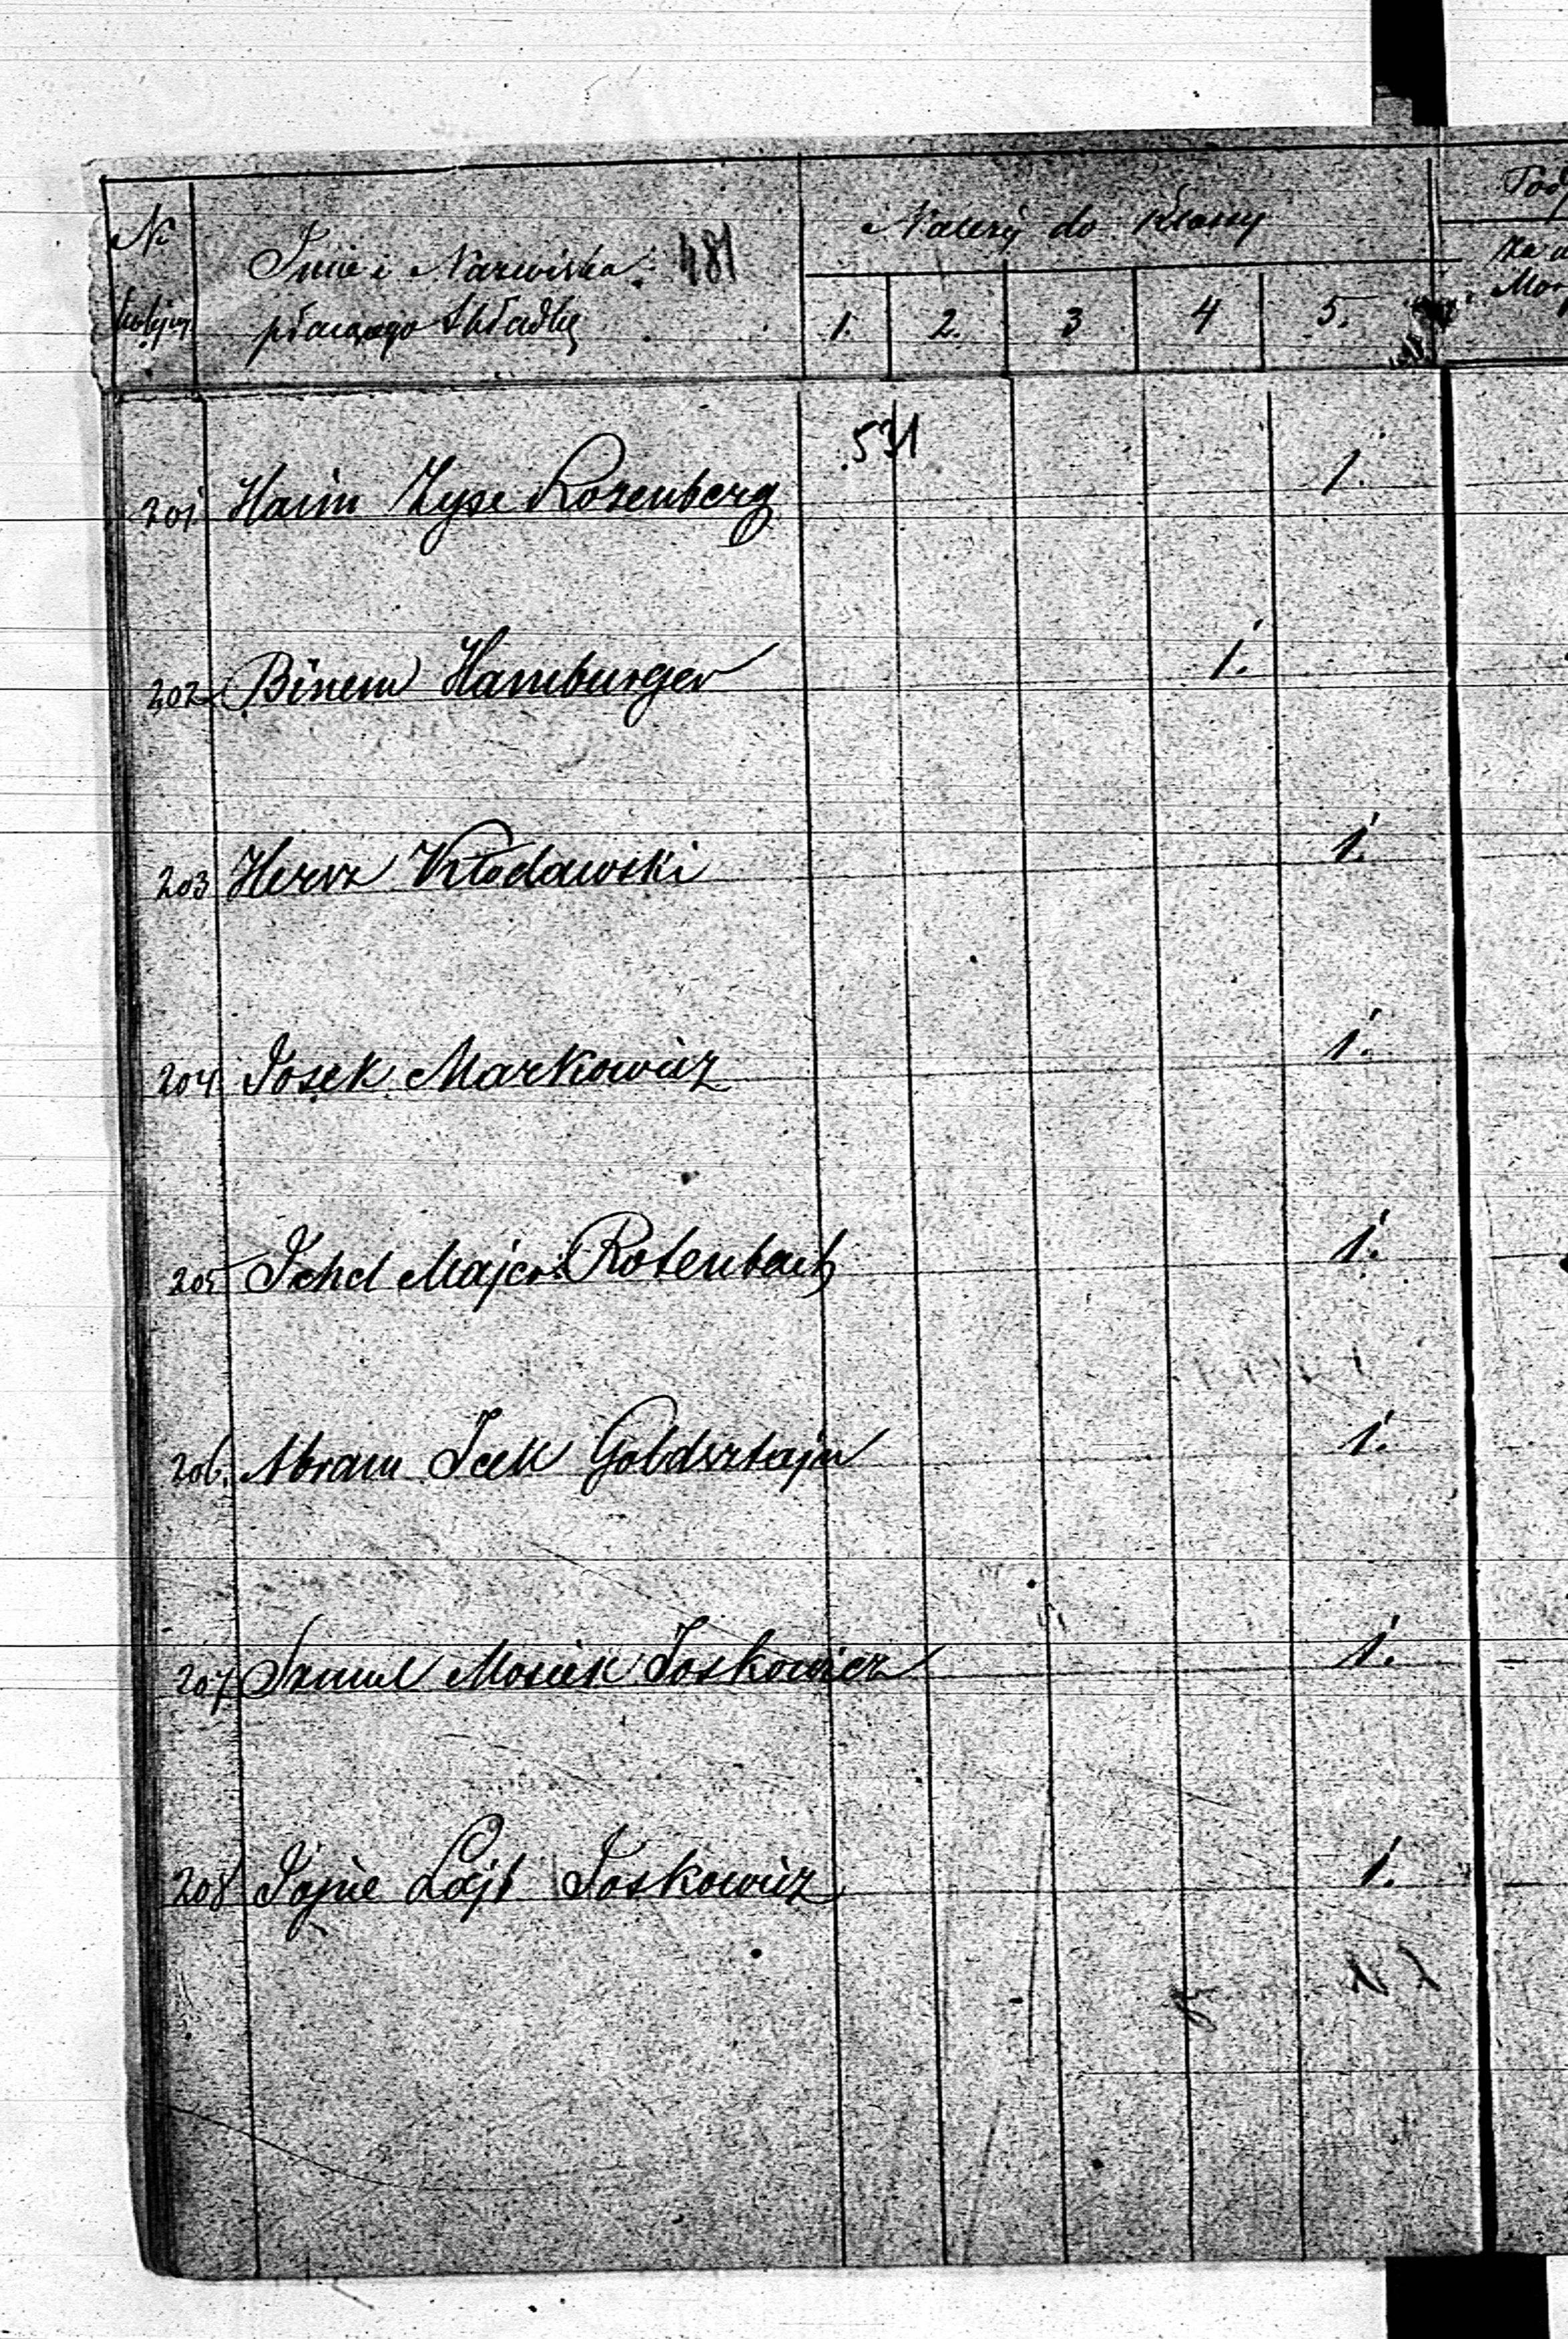 №
Imie i Nazwiska 481
płacącego Składkę
Należy do klassy
1. 2. 3 4 5.
531
201 Haim Zyse Rosenberg 1.
202 Binem Hamburger 1.
203 Hersz Kłodawski 1.
204 Josek Markowicz 1.
205 Majer Rotenbach 1.
206. Abram Icek Goldsztajn 1.
207 Szmul Mosiek Joskowicz 1.
208 Lajb Joskowicz 1.